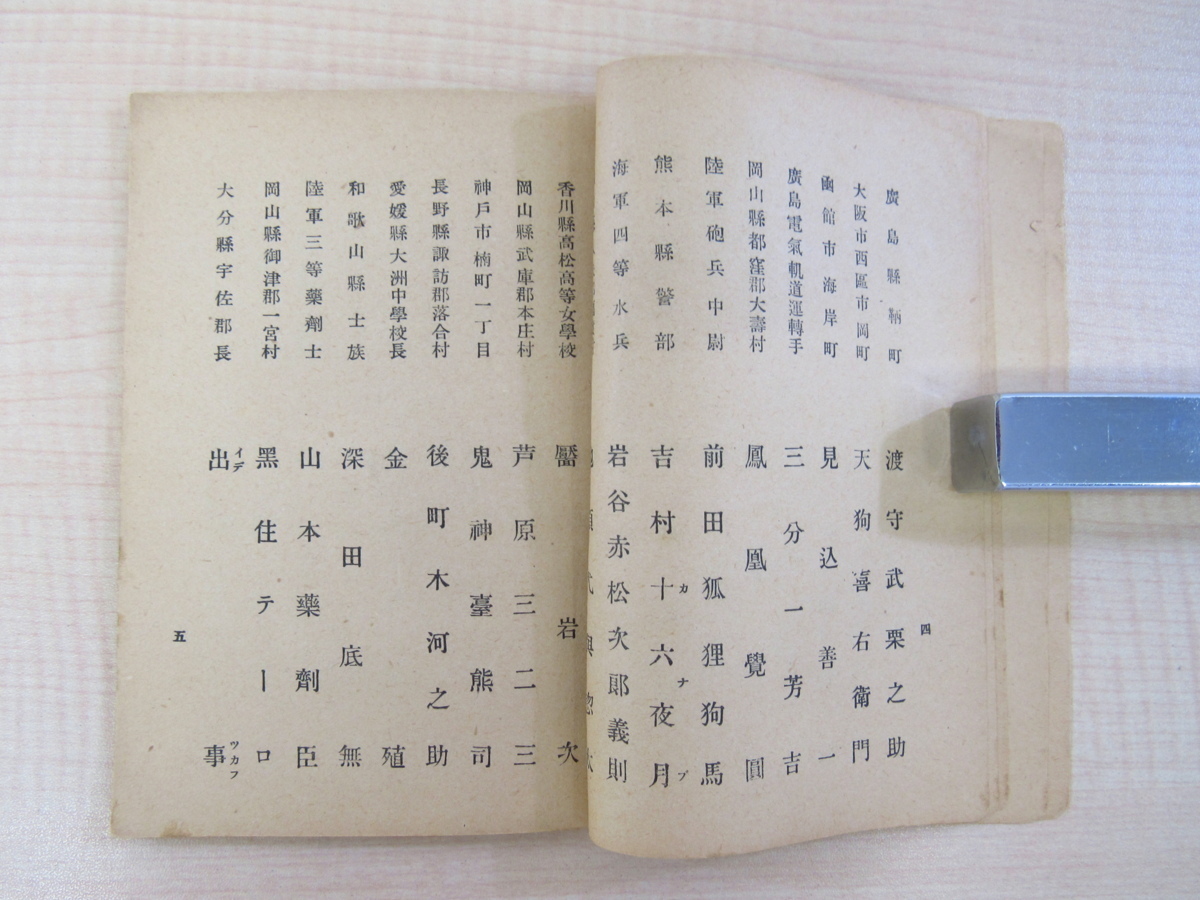 廣島縣鞆町　渡守武栗之助
大阪市西區市岡町　天狗喜右衛門
函館市海岸町　見込善一
廣島電氣軌道運轉手　三分一芳吉
岡山縣都窪郡大壽村　鳳凰覺圓
陸軍砲兵中尉　前田狐狸狗馬
熊本縣警部　吉村十六夜月
カナブ
海軍四等水兵　岩谷赤松次郞義則
四
香川縣高松高等女學校　靨岩次
岡山縣武庫郡本庄村　芦原三二三
神戶市楠町一丁目　鬼神臺熊司
長野縣諏訪郡落合村　後町木河之助
愛媛縣大洲中學校長　金殖
和歌山縣士族　深田底無
陸軍三等藥劑士　山本藥劑臣
岡山縣御津郡一宮村　黑住テーロ
大分縣宇佐郡長　出事
イデ　ツカフ
五